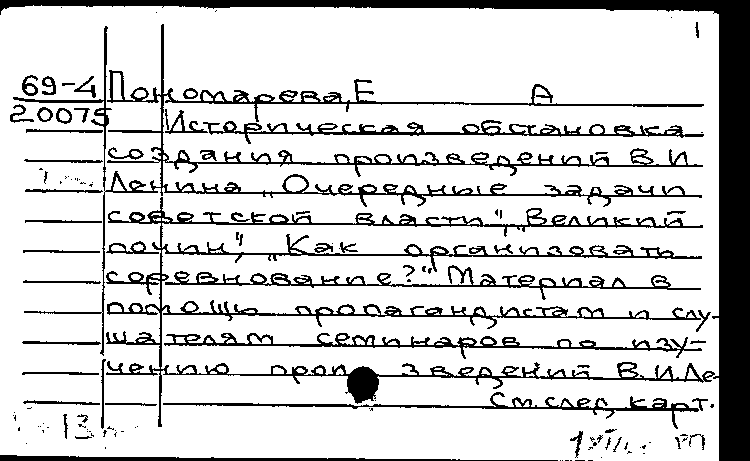 1
69-4 Пономарева, Е А
20075 Историческая обстановка
создания произведений В.И.
Ленина „Очередные задачи
советской власти", „Великий
почин", „Как организовать
соревнование?" Материал в
помощь пропагандистам и слу-
шателям семинаров по изу-
чению произведений В.И.Ле-
См.след.карт.
13